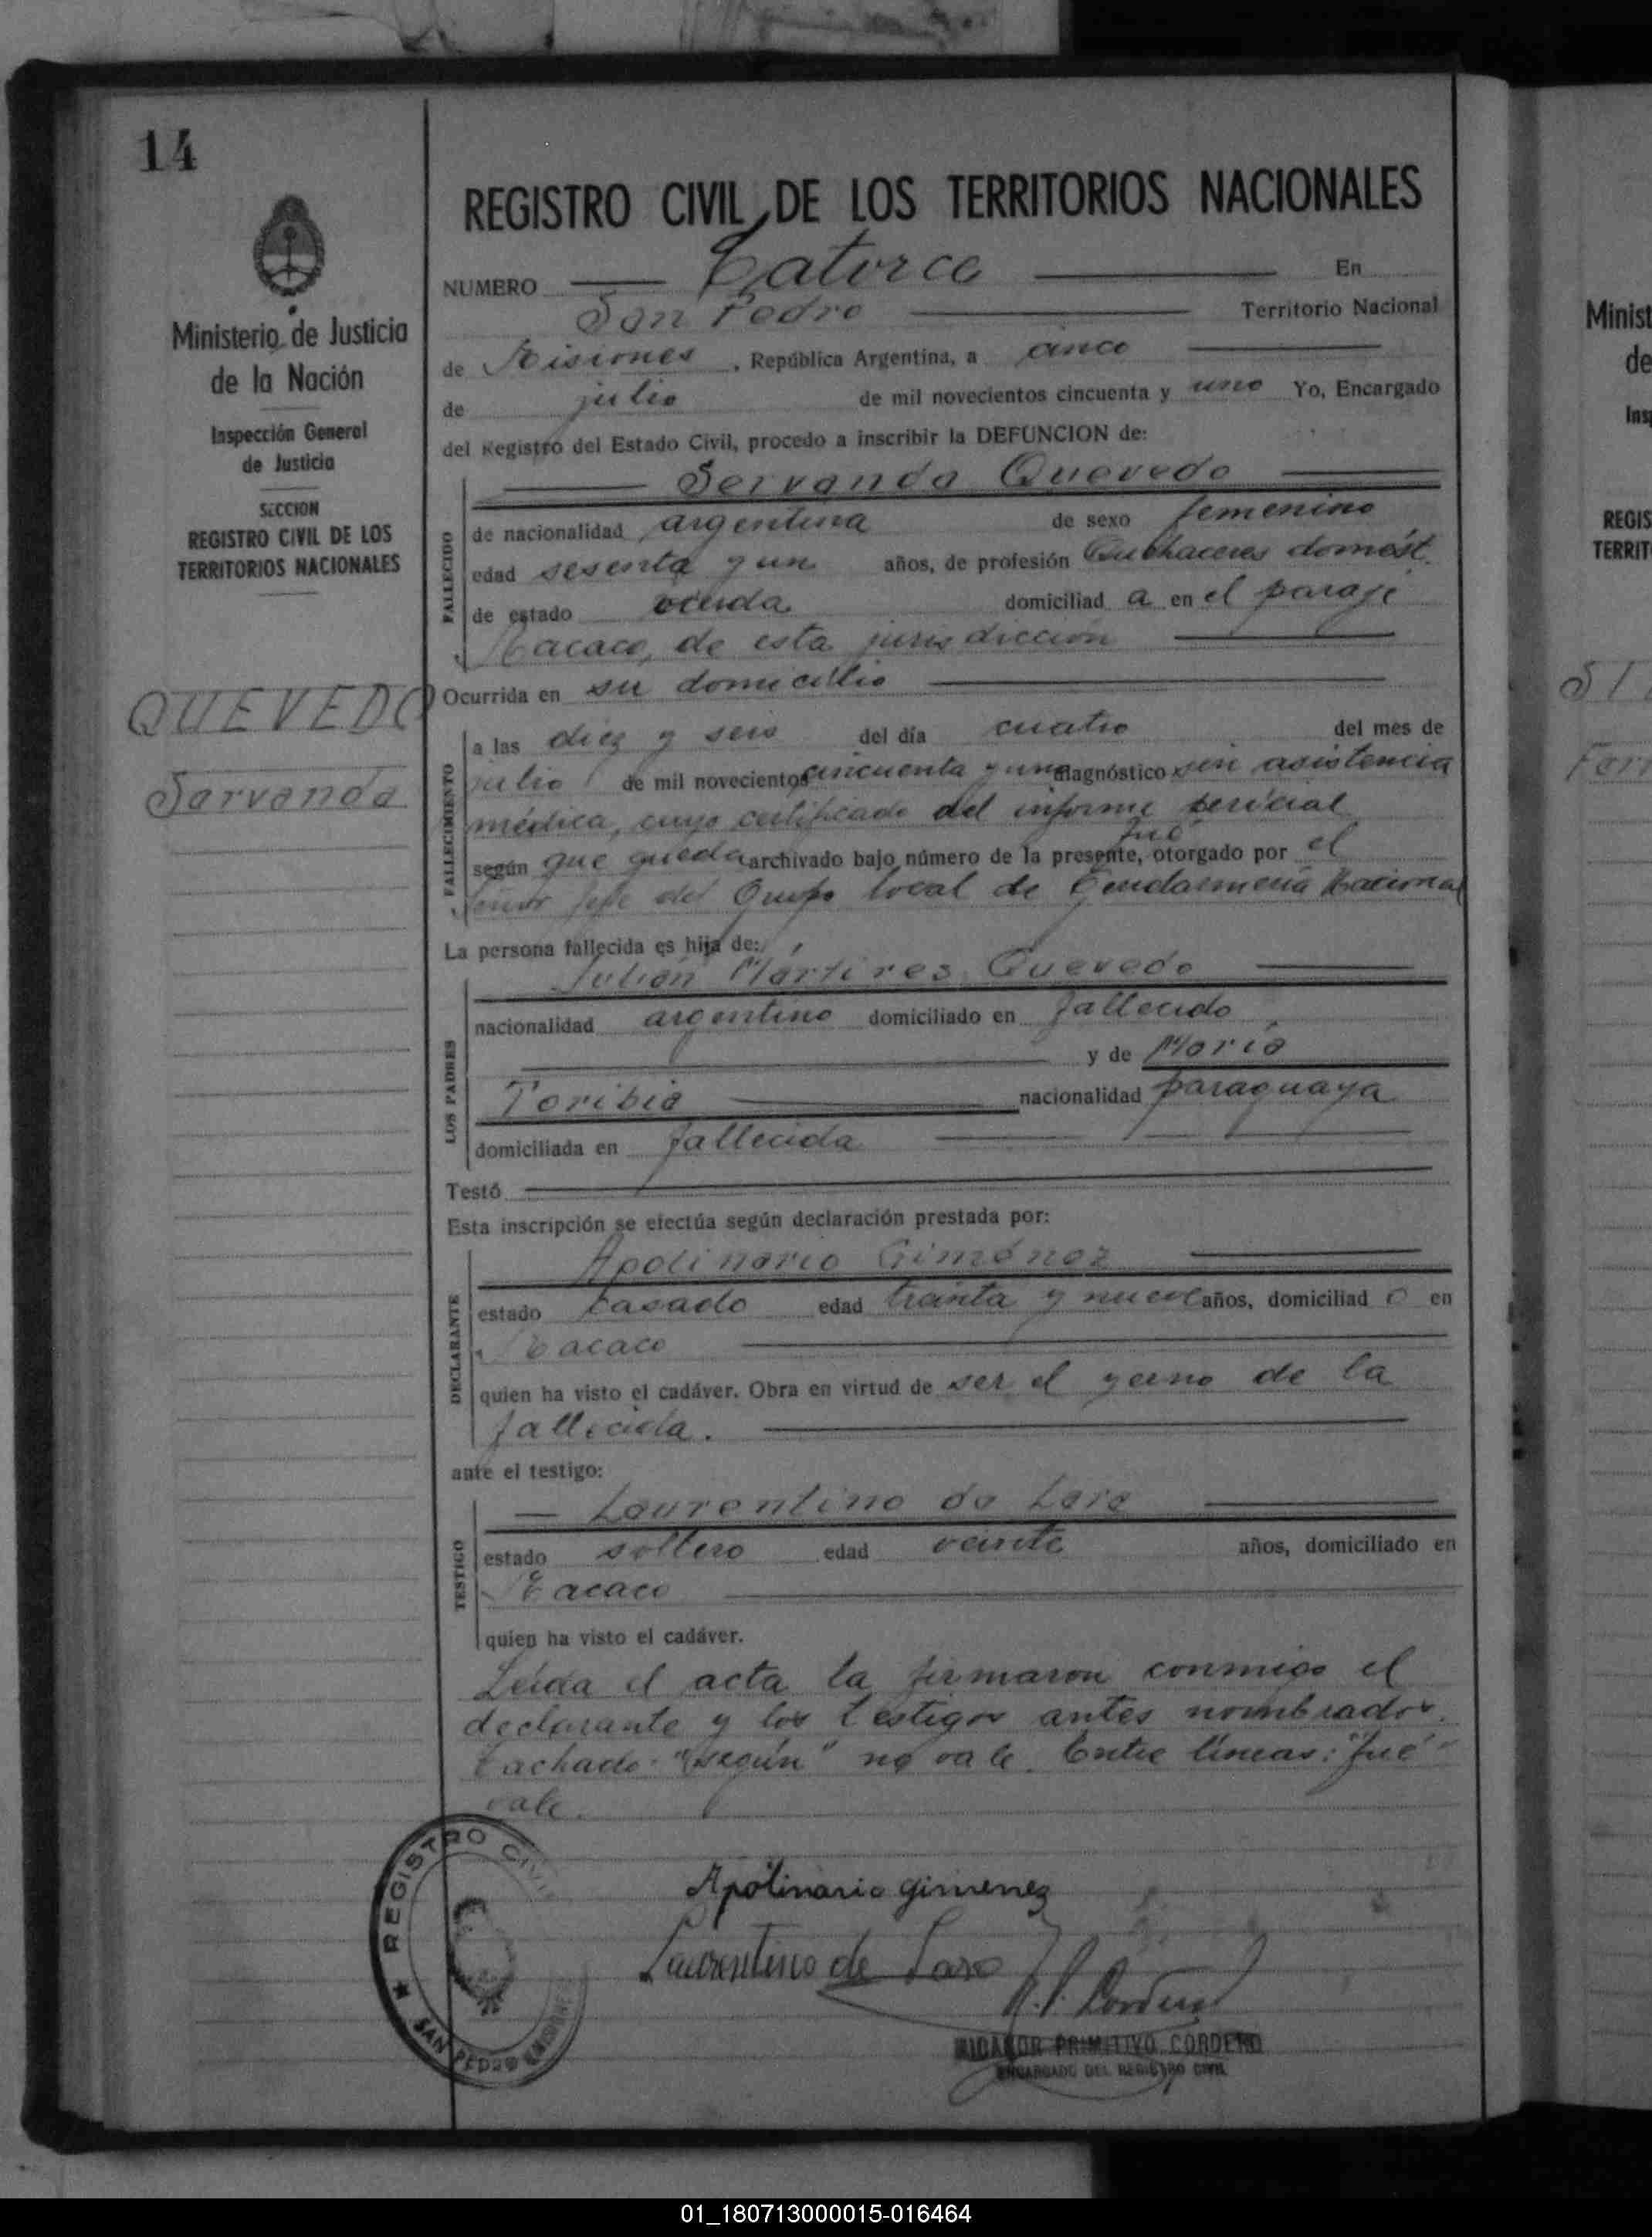 14
REGISTRO CIVIL DE LOS TERRITORIOS NACIONALES
NUMERO Catorce En
San Pedro Territorio Nacional
de Misiones, República Argentina, a cinco
de julio de mil novecientos cincuenta y uno Yo, Encargado
del Registro del Estado Civil, procedo a inscribir la DEFUNCION de:
Servanda Quevedo
FALLECIDO
de nacionalidad argentina de sexo femenino
edad sesenta y un años, de profesión Quehaceres domést.
de estado viuda domiciliad a en el paraje
Tacaco, de esta jurisdicción
Ocurrida en su domicilio
FALLECIMIENTO
a las diez y seis del día cuatro del mes de
julio de mil novecientos cincuenta y uno diagnóstico sin asistencia
médica, cuyo certificado del informe pericial
fué
según que queda archivado bajo número de la presente, otorgado por el
Señor Jefe del Grupo local de Gendarmería Nacional
La persona fallecida es hija de:
LOS PADRES
Julián Mártires Quevedo
nacionalidad argentino domiciliado en fallecido
y de María
Toribia nacionalidad paraguaya
domiciliada en fallecida
Testó
Esta inscripción se efectúa según declaración prestada por:
DECLARANTE
Apolinario Giménez
estado casado edad treinta y nueve años, domiciliad o en
Tacaco
quien ha visto el cadáver. Obra en virtud de ser el yerno de la
fallecida.
ante el testigo:
TESTIGO
Laurentino de Lara
estado soltero edad veinte años, domiciliado en
Tacaco
quien ha visto el cadáver.
Leída el acta la firmaron conmigo el
declarante y los testigos antes nombrados.
Tachado: "según" no vale. Entre líneas: "fué"
vale.
Apolinario gimenez
Laurentino de Lara
N. P. Cordero
NICANOR PRIMITIVO CORDERO
ENCARGADO DEL REGISTRO CIVIL
REGISTRO CIVIL
SAN PEDRO MISIONES
Ministerio de Justicia
de la Nación
Inspección General
de Justicia
SECCION
REGISTRO CIVIL DE LOS
TERRITORIOS NACIONALES
QUEVEDO
Servanda
Minist
de
Insp
REGIS
TERRIT
01_180713000015-016464